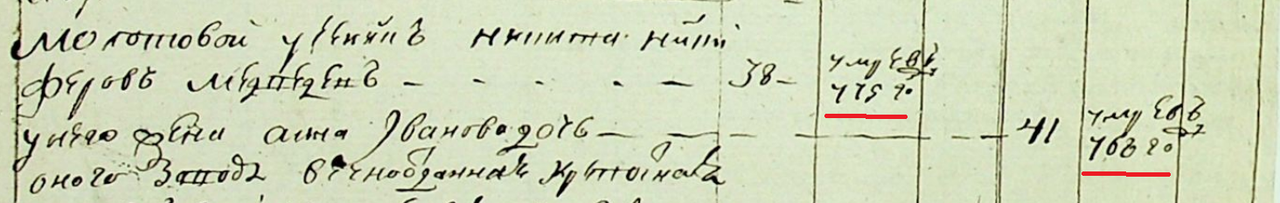 Молотовой ученикъ никита ники
феровъ медведевъ - - - - - 38 - умре въ
775 го
у него жена анна Иванова дочь - - - - - - 41 умре въ
768 го
оного завода вечноотданнаго